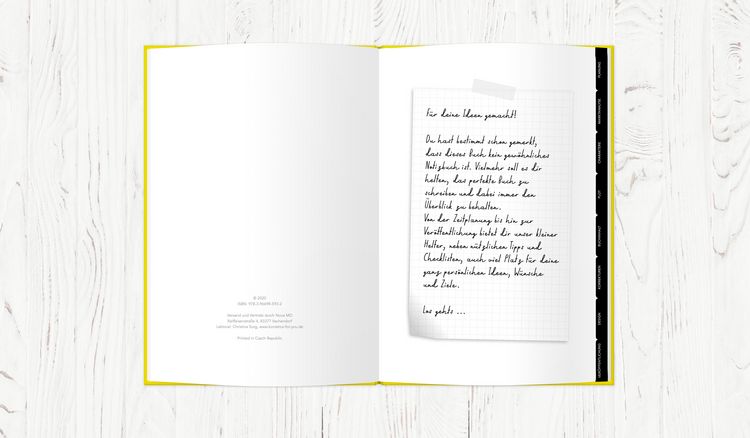 © 2020
Printed in Czech Republic.
Für deine Ideen gemacht!
Du hast bestimmt schon gemerkt,
dass dieses Buch kein gewöhnliches
Notizbuch ist. Vielmehr soll es dir
helfen, das perfekte Buch zu
schreiben und dabei immer den
Überblick zu behalten.
Von der Zeitplanung bis hin zur
Veröffentlichung bietet dir unser kleiner
Helfer, neben nützlichen Tipps und
Checklisten, auch viel Platz für deine
ganz persönlichen Ideen, Wünsche
und Ziele.
Los gehts ...
PLANUNG
CHARAKTERE
PLOT
KORREKTUREN
DESIGN
VERÖFFENTLICHUNG